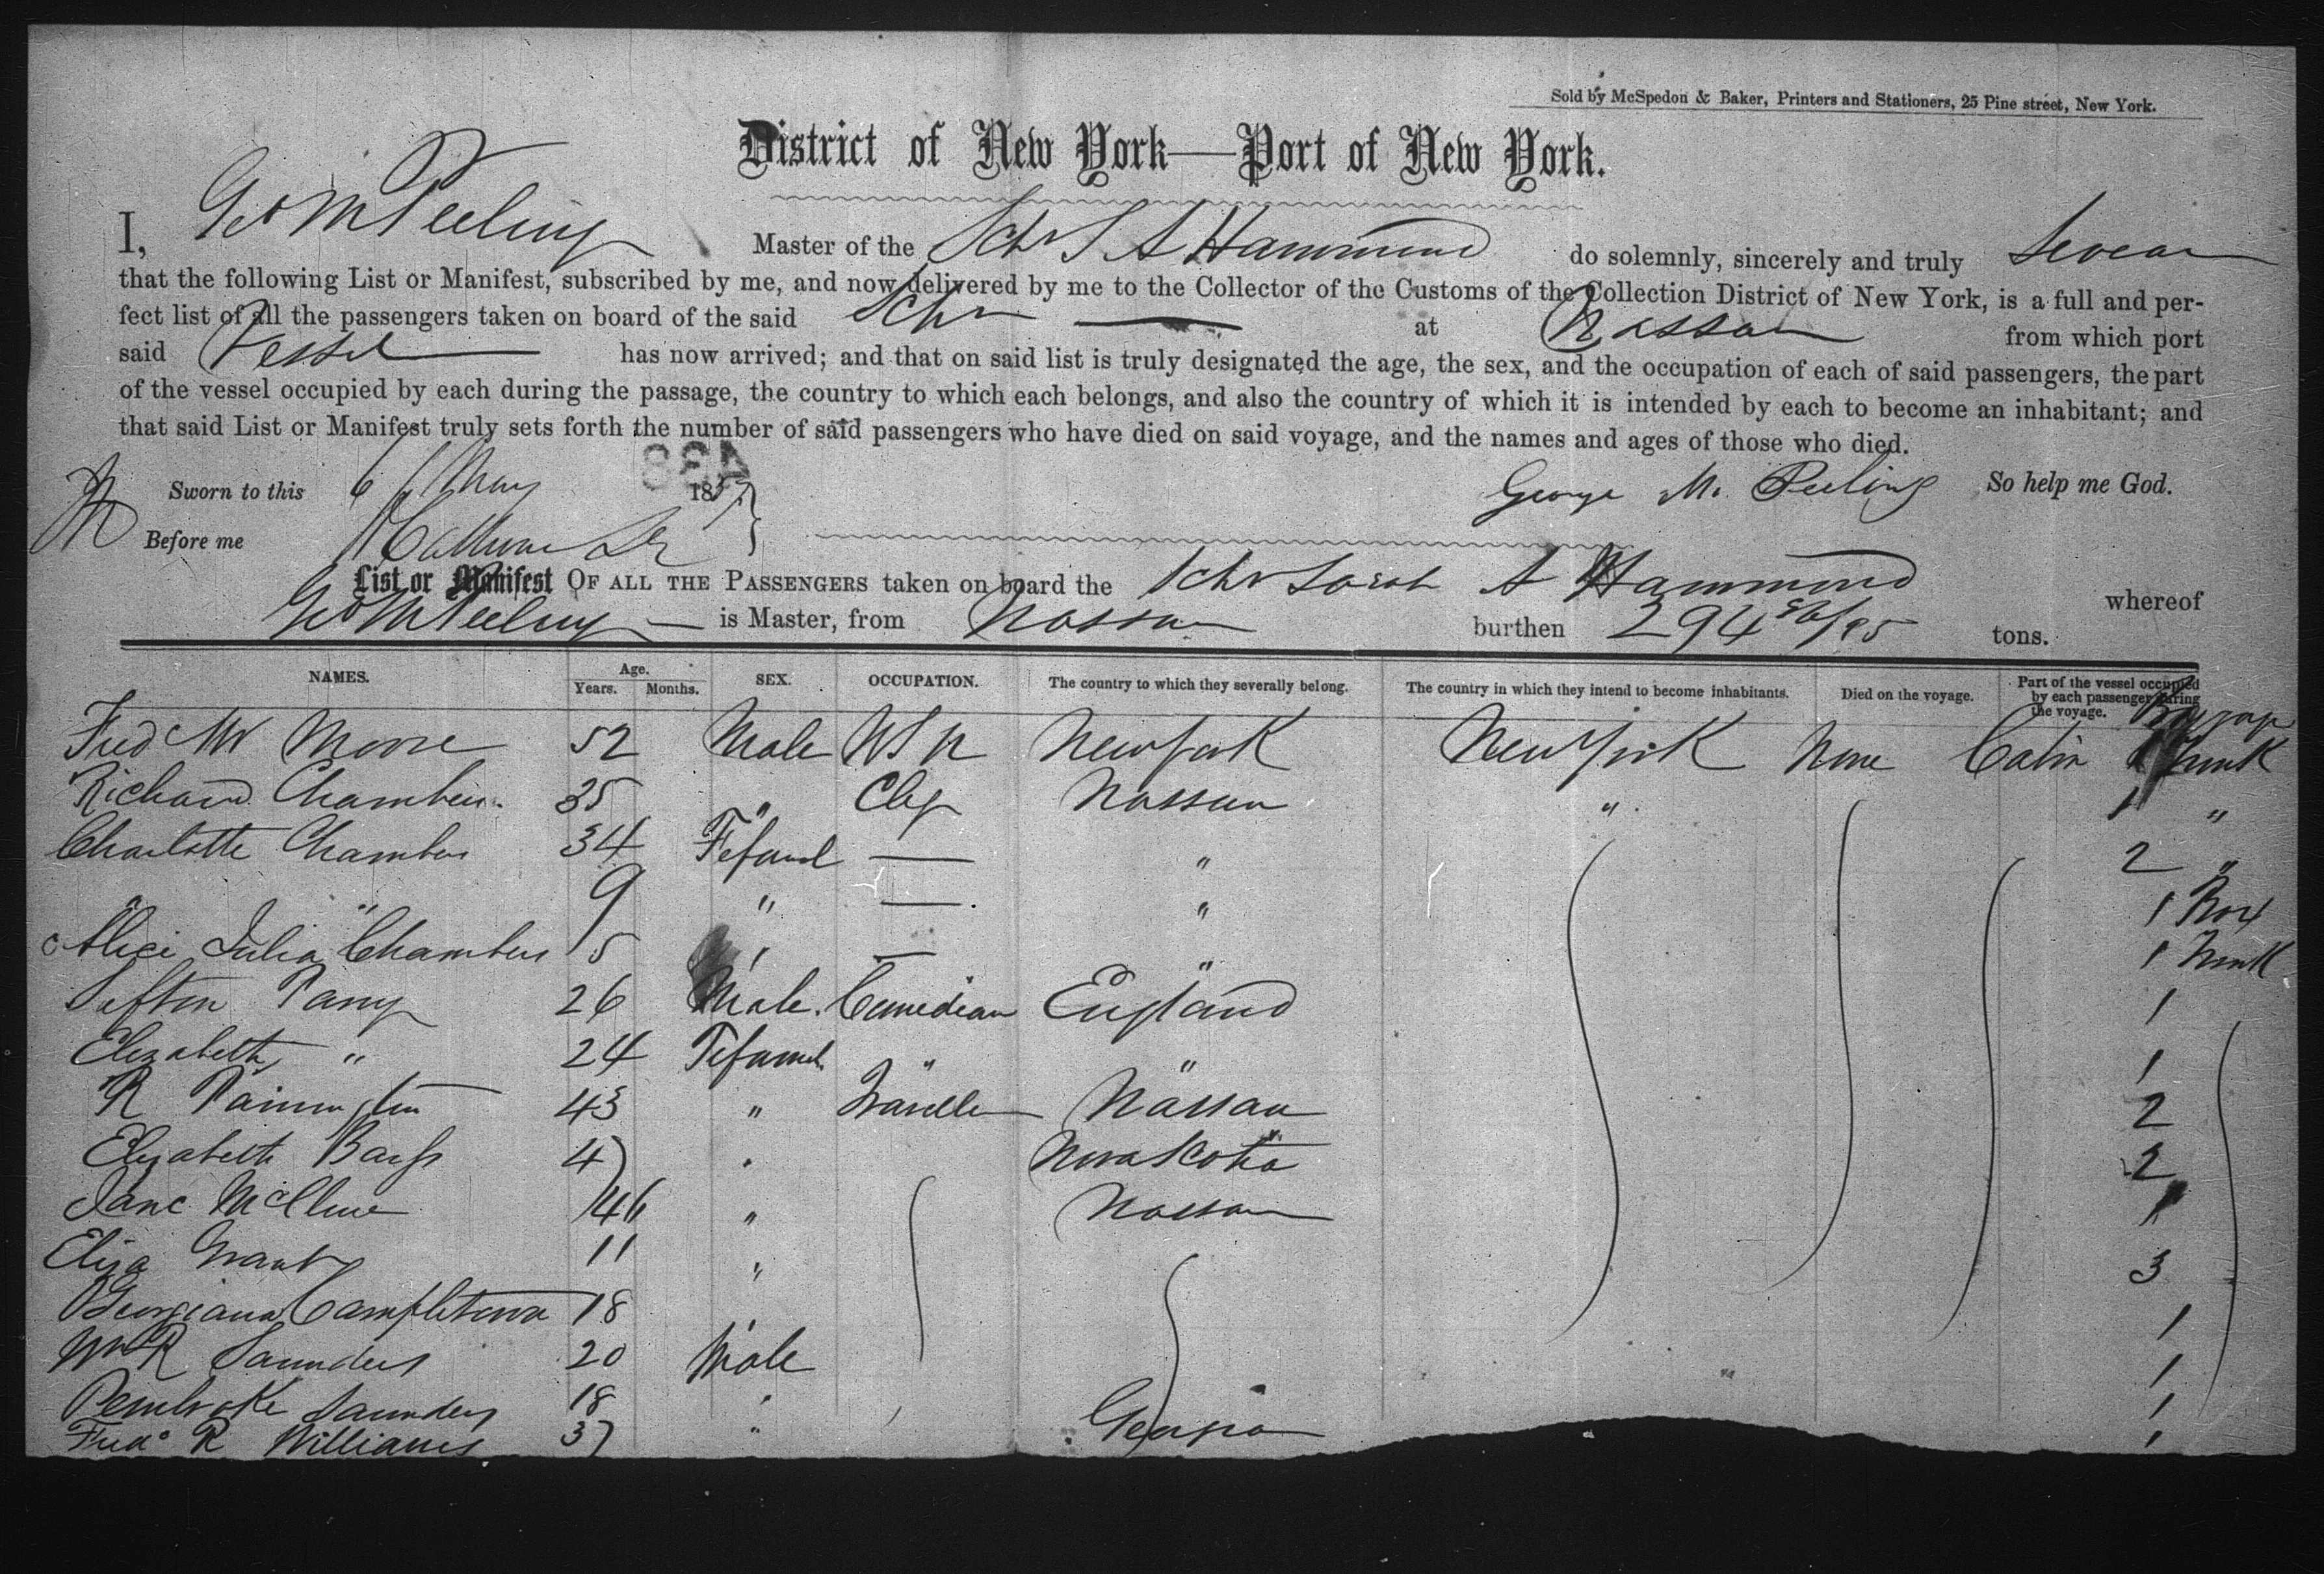 Sold by McSpedon & Baker, Printers and Stationers, 25 Pine street, New York.
District of New York—Port of New York.
I, Geo M Peeling Master of the Schr S A Hammond do solemnly, sincerely and truly Swear
that the following List or Manifest, subscribed by me, and now delivered by me to the Collector of the Customs of the Collection District of New York, is a full and per-
fect list of all the passengers taken on board of the said Schr — at Nassau from which port
said Vessel has now arrived; and that on said list is truly designated the age, the sex, and the occupation of each of said passengers, the part
of the vessel occupied by each during the passage, the country to which each belongs, and also the country of which it is intended by each to become an inhabitant; and
that said List or Manifest truly sets forth the number of said passengers who have died on said voyage, and the names and ages of those who died.
438
Sworn to this 6 May 1857 George M. Peeling So help me God.
Before me
List or Manifest OF ALL THE PASSENGERS taken on board the Schr Sarah A Hammond whereof
Geo M Peeling — is Master, from Nassau burthen 294 86/95 tons.
NAMES. Age. Years. Months. SEX. OCCUPATION. The country to which they severally belong. The country in which they intend to become inhabitants. Died on the voyage. Part of the vessel occupied by each passenger during the voyage.
Fred W Moore 52 Male New York New York None Cabin 1 Trunk
Richard Chambers 35 " Nassau " 1 "
Charlotte Chambers 34 — " 2 "
" " 9 " — " 1 Box
Alice Julia Chambers 5 " — " 1 Trunk
Sefton Parry 26 Male Comedian England 1
Elizabeth " 24 " " 1
R 43 " Nassau 2
Elizabeth 47 " Nova Scotia 2
Jane McClure 46 " Nassau 1
Eliza Grant 11 " 3
Georgiana 18 " 1
Wm R Saunders 20 Male 1
Pembroke Saunders 18 " 1
R Williams 37 " Georgia 1